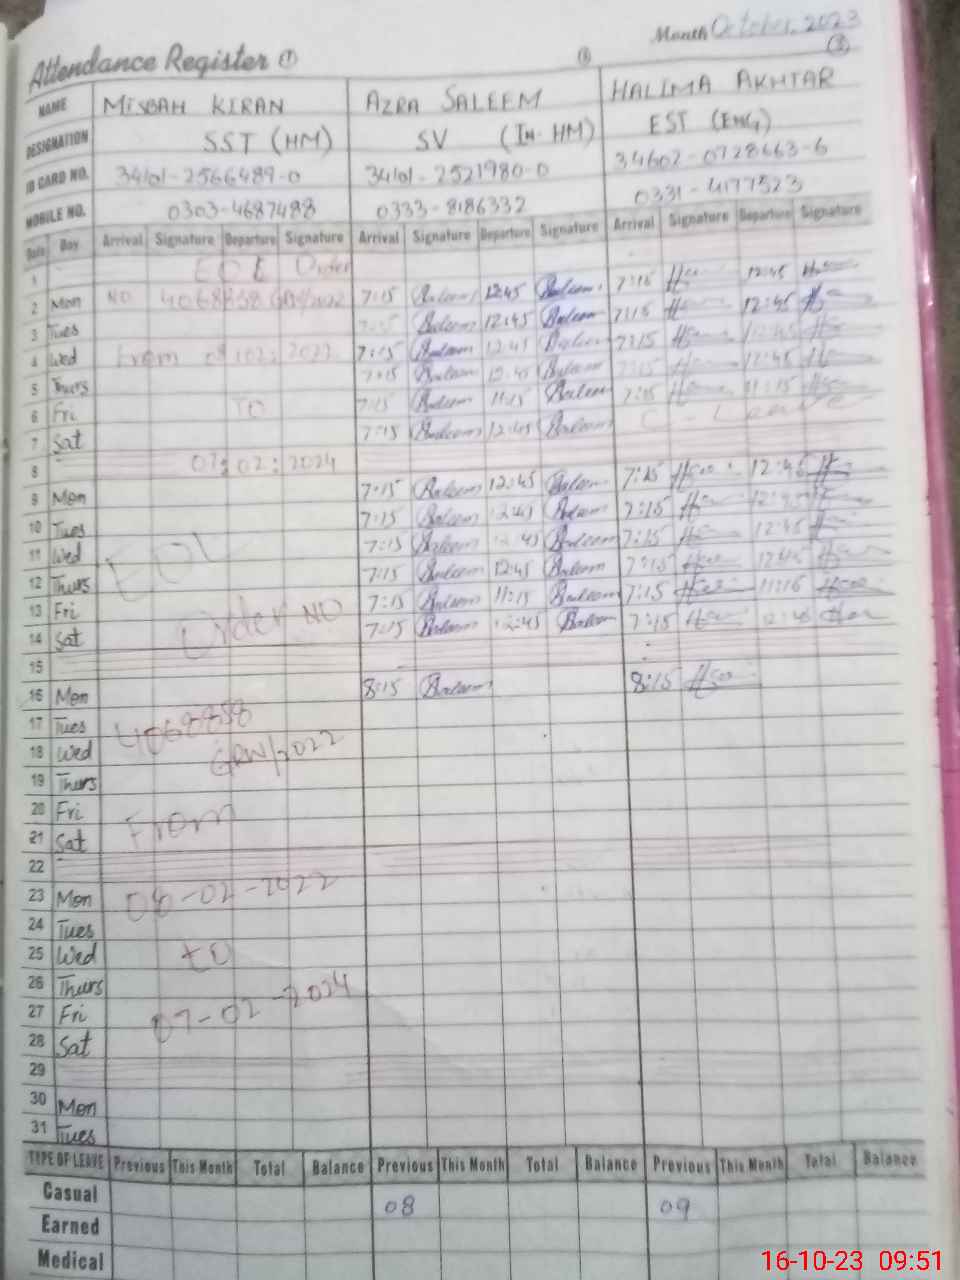 Month October, 2023
Attendance Register ① ③ ③
NAME MISBAH KIRAN AZRA SALEEM HALIMA AKHTAR
DESIGNATION SST (HM) SV (In. HM) EST (ENG)
ID CARD NO. 34101-2566489-0 34101-2521980-0 34602-0728663-6
MOBILE NO. 0303-4687488 0333-8186332 0331-4177523
Date Day Arrival Signature Departure Signature Arrival Signature Departure Signature Arrival Signature Departure Signature
1 EOL Order
2 Mon NO 4068858 GRW/2022 7:15 Saleem 12:45 Saleem 7:15 12:45
3 Tues 7:15 Saleem 12:45 Saleem 7:15 12:45
4 Wed From 08:02:2022 7:15 Saleem 12:45 Saleem 7:15 12:45
5 Thurs 7:15 Saleem 12:45 Saleem 7:15 12:45
6 Fri TO 7:15 Saleem 11:15 Saleem 7:15 11:15
7 Sat 7:15 Saleem 12:45 Saleem C - Leave
8 07:02:2024
9 Mon 7:15 Saleem 12:45 Saleem 7:15 12:45
10 Tues 7:15 Saleem 12:45 Saleem 7:15 12:45
11 Wed EOL 7:15 Saleem 12:45 Saleem 7:15 12:45
12 Thurs 7:15 Saleem 12:45 Saleem 7:15 12:45
13 Fri Order NO 7:15 Saleem 11:15 Saleem 7:15 11:15
14 Sat 7:15 Saleem 12:45 Saleem 7:15 12:45
15
16 Mon 8:15 Saleem 8:15
17 Tues 4068858
18 Wed GRW/2022
19 Thurs
20 Fri From
21 Sat
22
23 Mon 08-02-2022
24 Tues
25 Wed to
26 Thurs
27 Fri 07-02-2024
28 Sat
29
30 Mon
31 Tues
TYPE OF LEAVE Previous This Month Total Balance Previous This Month Total Balance Previous This Month Total Balance
Casual 08 09
Earned
Medical
16-10-23 09:51